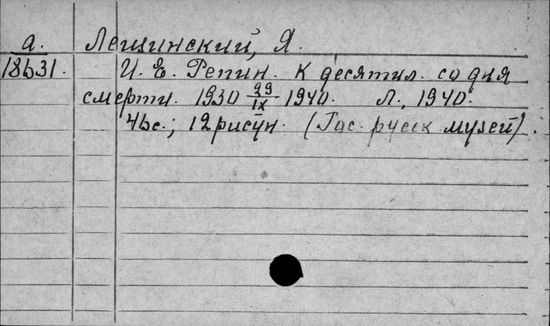 а. Лещинский, Я.
18631. И. Е. Репин. К десятил. со дня
смерти. 1930 29/IX 1940. Л., 1940.
46с.; 12 рисун. (Гос. русск музей).